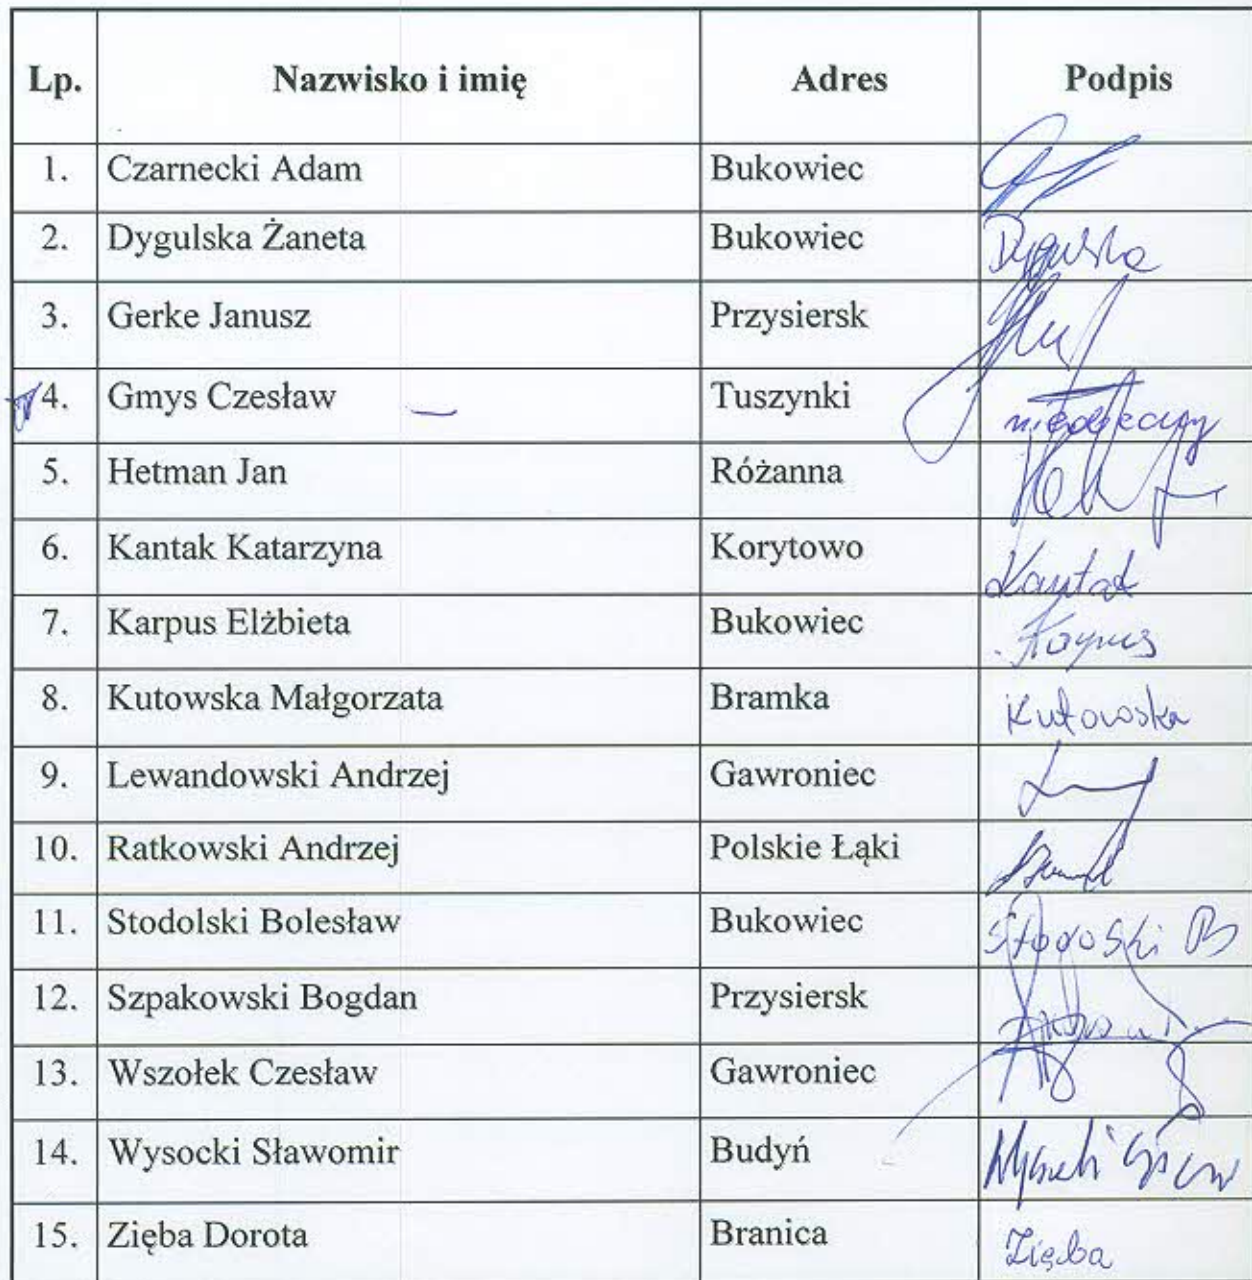 Lp. Nazwisko i imię Adres Podpis
1. Czarnecki Adam Bukowiec
2. Dygulska Żaneta Bukowiec Dygulska
3. Gerke Janusz Przysiersk
4. Gmys Czesław — Tuszynki nieobecny
5. Hetman Jan Różanna
6. Kantak Katarzyna Korytowo Kantak
7. Karpus Elżbieta Bukowiec Karpus
8. Kutowska Małgorzata Bramka Kutowska
9. Lewandowski Andrzej Gawroniec
10. Ratkowski Andrzej Polskie Łąki
11. Stodolski Bolesław Bukowiec
12. Szpakowski Bogdan Przysiersk
13. Wszołek Czesław Gawroniec
14. Wysocki Sławomir Budyń
15. Zięba Dorota Branica Zięba